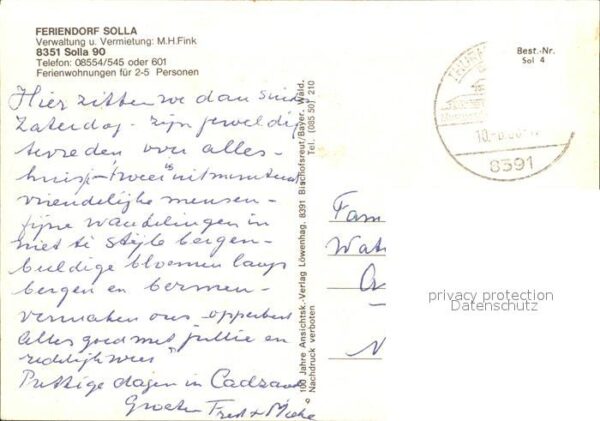 FERIENDORF SOLLA
Verwaltung u. Vermietung: M.H.Fink
8351 Solla 90
Telefon: 08554/545 oder 601
Ferienwohnungen für 2-5 Personen
Best.-Nr.
Sol 4
Hier zitten we dan sinds
Zaterdag - zijn geweldig
tevreden over alles -
huisje
vriendelijke mensen -
fijne wandelingen in
niet te steile bergen -
bloemen langs
bergen en bermen -
vermaken ons opperbest
Alles goed met jullie en
Prettige dagen in Cadzand
Groeten Fred + 
10.
8391
© 100 Jahre Ansichtsk.-Verlag Löwenhag. 8391 Bischofsreut/Bayer. Wald.
Nachdruck verboten
Tel. (085 50) 210
Fam
Wat
privacy protection
Datenschutz